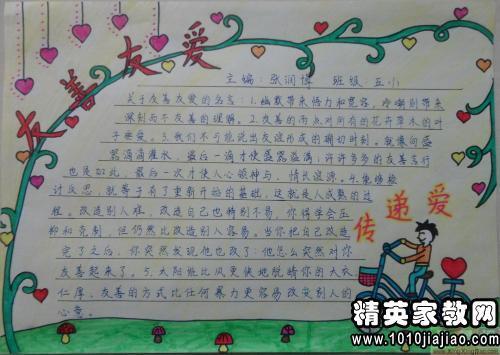 友善友爱
主编：张润博 班级：五小
关于友善友爱的名言：1.幽默带来悟力和宽容，冷嘲则带来
深刻而不友善的理解。2.友善的雨点对所有的花卉草木的叶
子垂爱。3.我们不可能说出友谊形成的确切时刻。就像向盛
器滴滴灌水，最后一滴才使盛器盛满；许许多多的友善言行
也是如此，最后一次才使人心领神与、情长谊深。4.集
讨反思，就等于有了重新开始的基础，这就是人成熟的过
程。改造别人难，改造自己也特别不易，你得学会压
抑和克制，但仍然比改造别人容易。当你把自己改造
完了之后，你突然发现他也改了：他怎么突然对你
友善起来了。5.太阳能比风更快地脱掉你的大衣
仁厚、友善的方式比任何暴力更容易改变别人的
心意。
传递爱
精英家教网
www.1010jiajiao.com